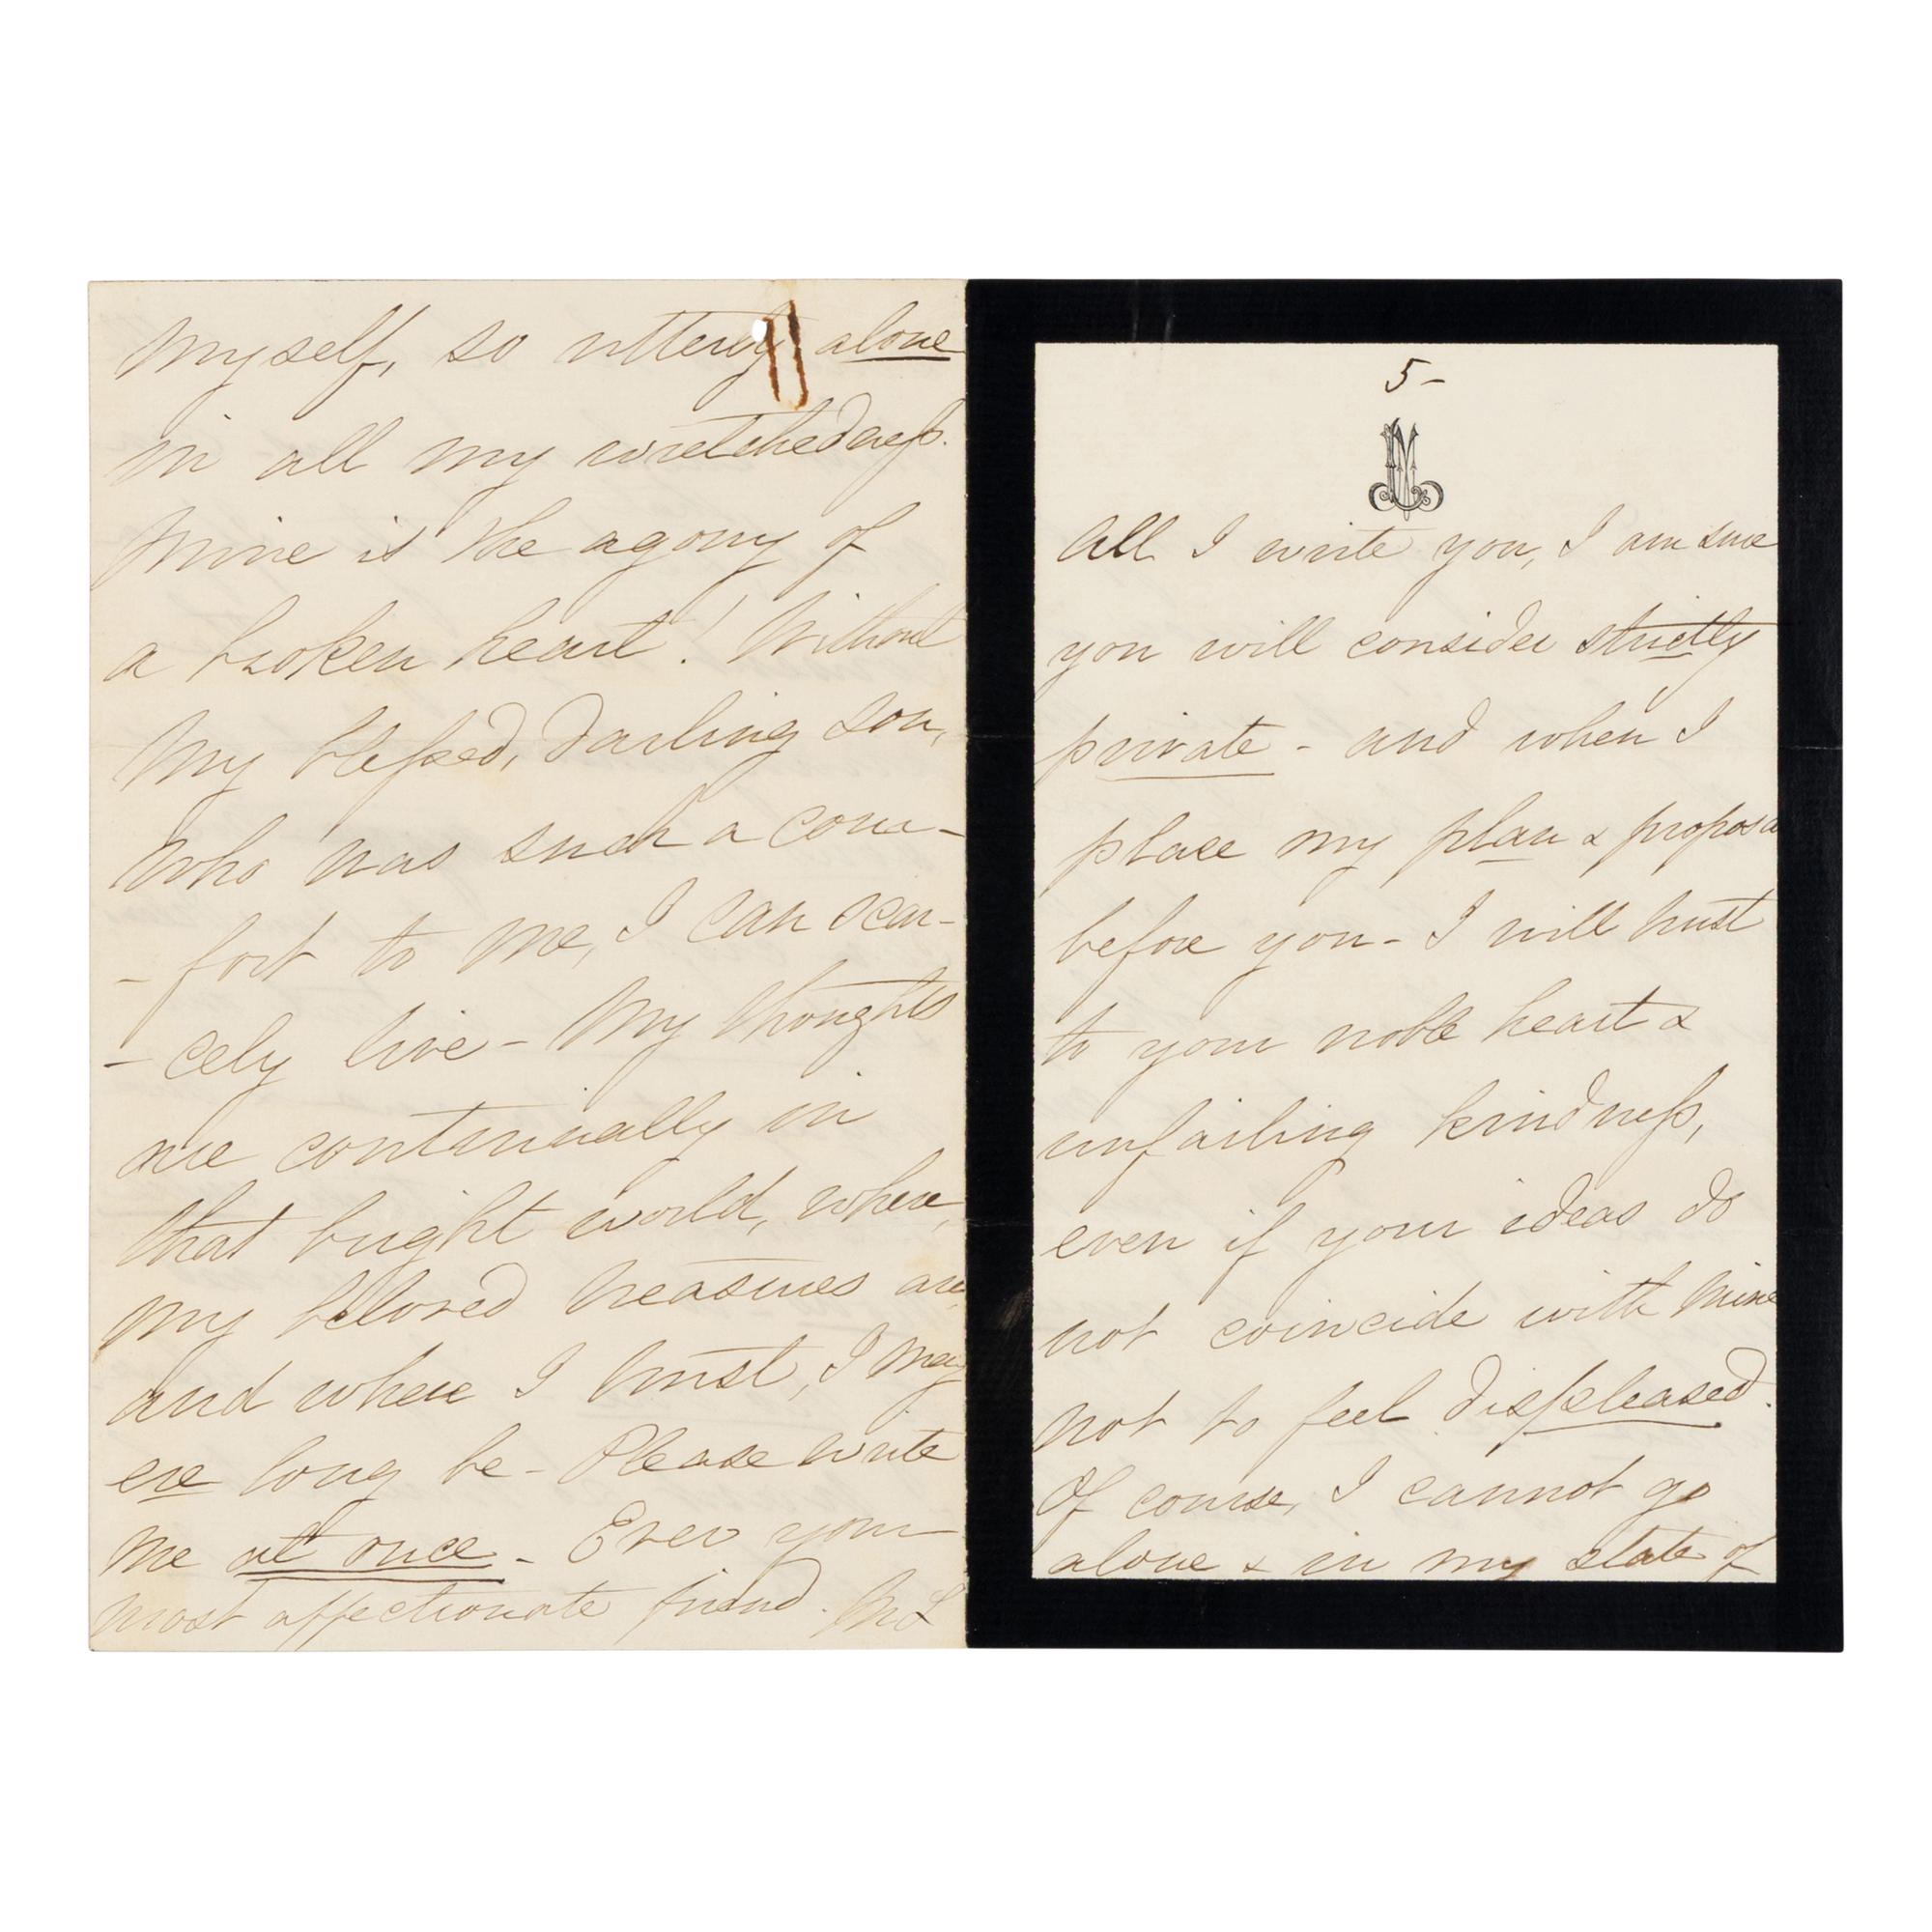 Myself, so utterly alone
in all my wretchedness.
Mine is the agony of
a broken heart! Without
My blessed, darling son,
Who was such a com-
-fort to me, I can scar-
-cely live - My thoughts
are continually in
that bright world, where,
my beloved treasures are,
and where I trust, I may
ere long be - Please write
me at once - Ever your
most affectionate friend. ML
5-
All I write you, I am sure
you will consider strictly
private - and when I
place my plan & proposa
before you - I will trust
to your noble heart &
unfailing kindness,
even if your ideas do
not coincide with mine
not to feel displeased.
Of course, I cannot go
alone & in my state of